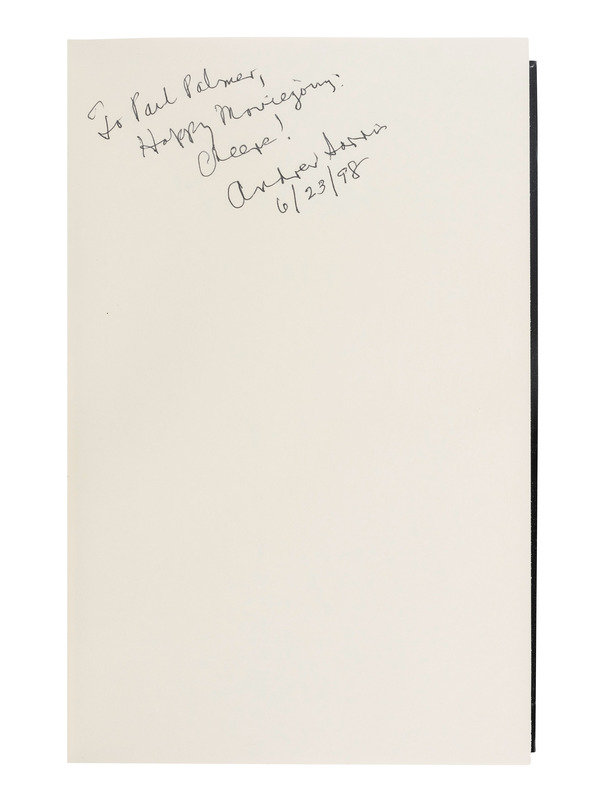 To Paul Palmer,
Happy Moviegoing.
Cheers!
Andrew Sarris
6/23/98